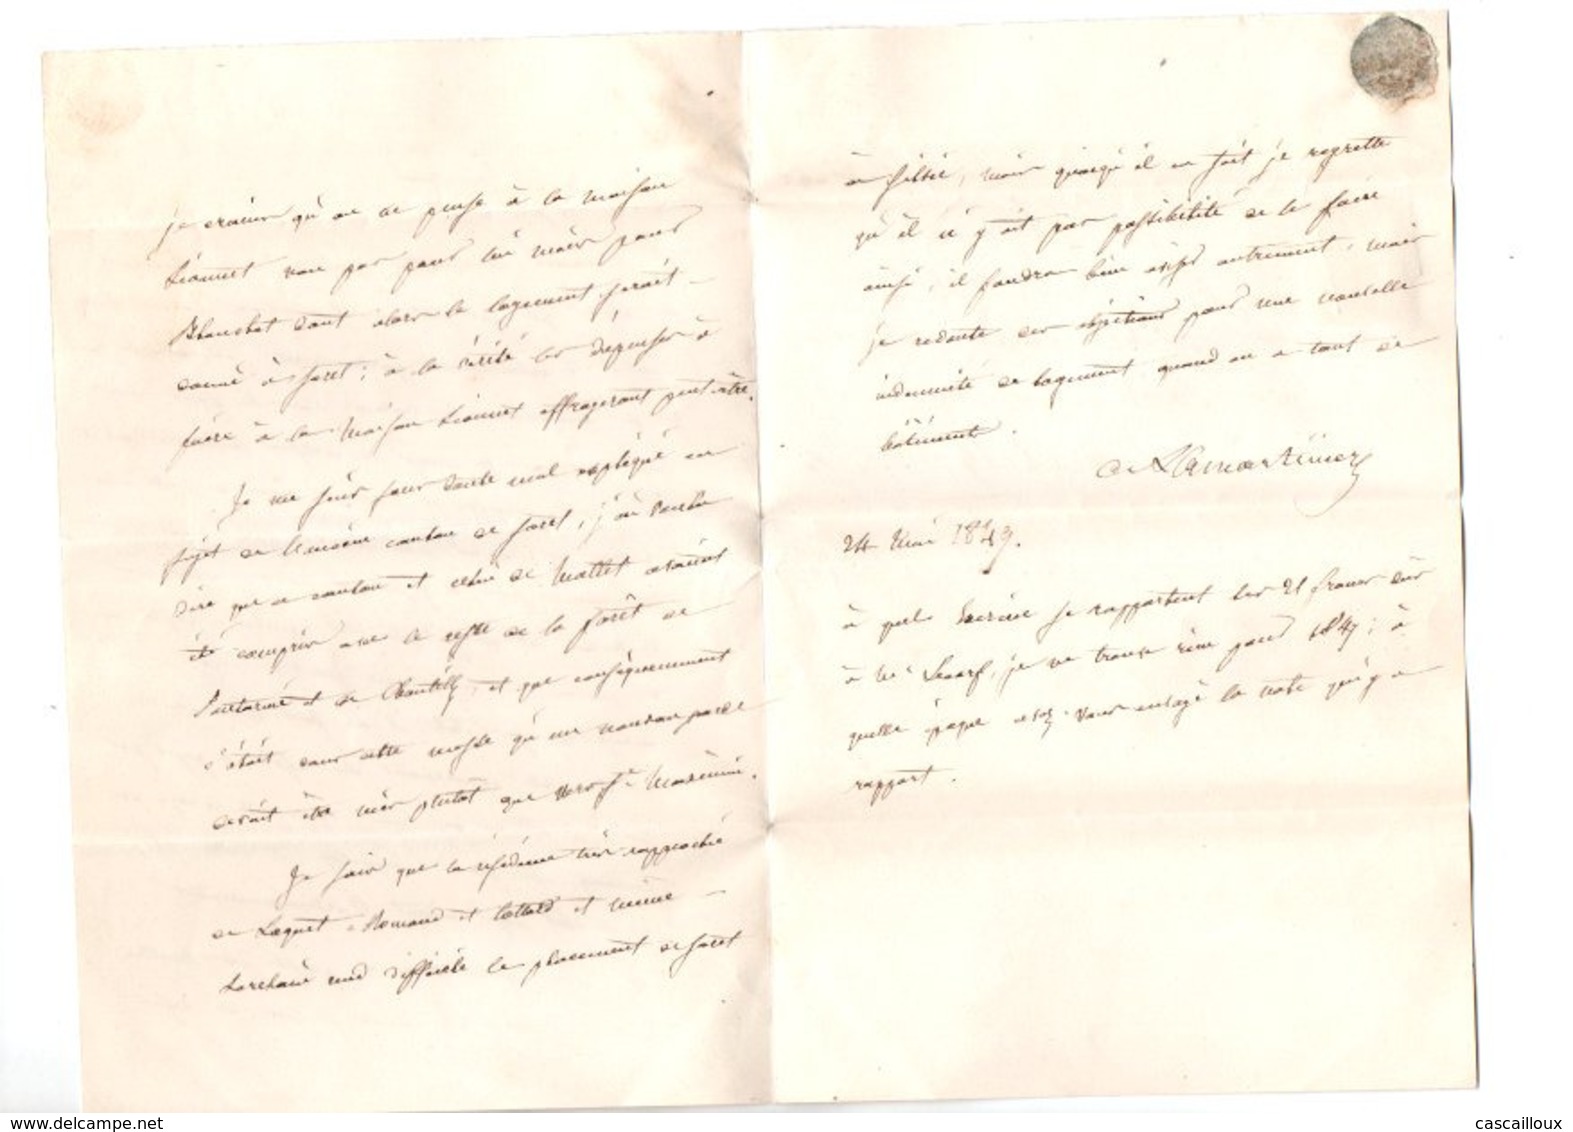 je crains qu'on ne pense à la maison
Lionnet non pas pour lui mais pour
Blanchet dont alors le logement serait
donné à foret ; à la vérité les dépenses à
faire à la maison Lionnet effrayeront peut être.
Je me suis sans doute mal expliqué au
sujet de l'ancien canton de foret, j'ai voulu
dire que ce canton et celui de Mallet avaient
été compris avec le reste de la forêt de
et de Chantilly, et que conséquemment
c'était dans cette masse qu'un nouveau garde
devait être mis plutôt que
Je sais que la résidence très rapprochée
de Laquet, Romand et et même
rend difficile le placement de foret
mais quoiqu'il en soit je regrette
qu'il n'y ait pas possibilité de le faire
ainsi, il faudra bien autrement, mais
je redoute des objections pour une nouvelle
indemnité de logement quand on a tant de
bâtiments.
de Lamartinez
24 Mai 1849.
à quel se rapportent les 21 francs dûs
à Mr je ne trouve rien pour 1847 ; à
quelle époque avez-vous envoyé la note qui y a
rapport.
cascailloux